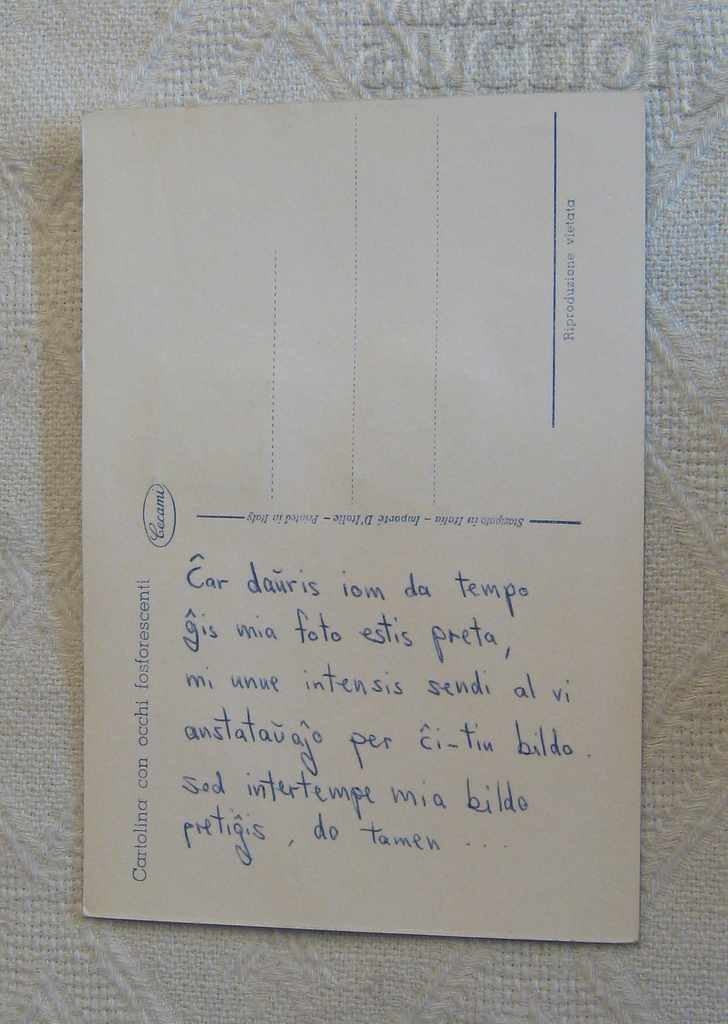 BALKAN
auction
Riproduzione vietata
Stampato in Italia - Importé D'Italie - Printed in Italy
Cecami
Cartolina con occhi fosforescenti
Ĉar daŭris iom da tempo
ĝis mia foto estis preta,
mi unue intensis sendi al vi
anstataŭaĵo per ĉi-tiu bildo.
sed intertempe mia bildo
pretiĝis, do tamen ....